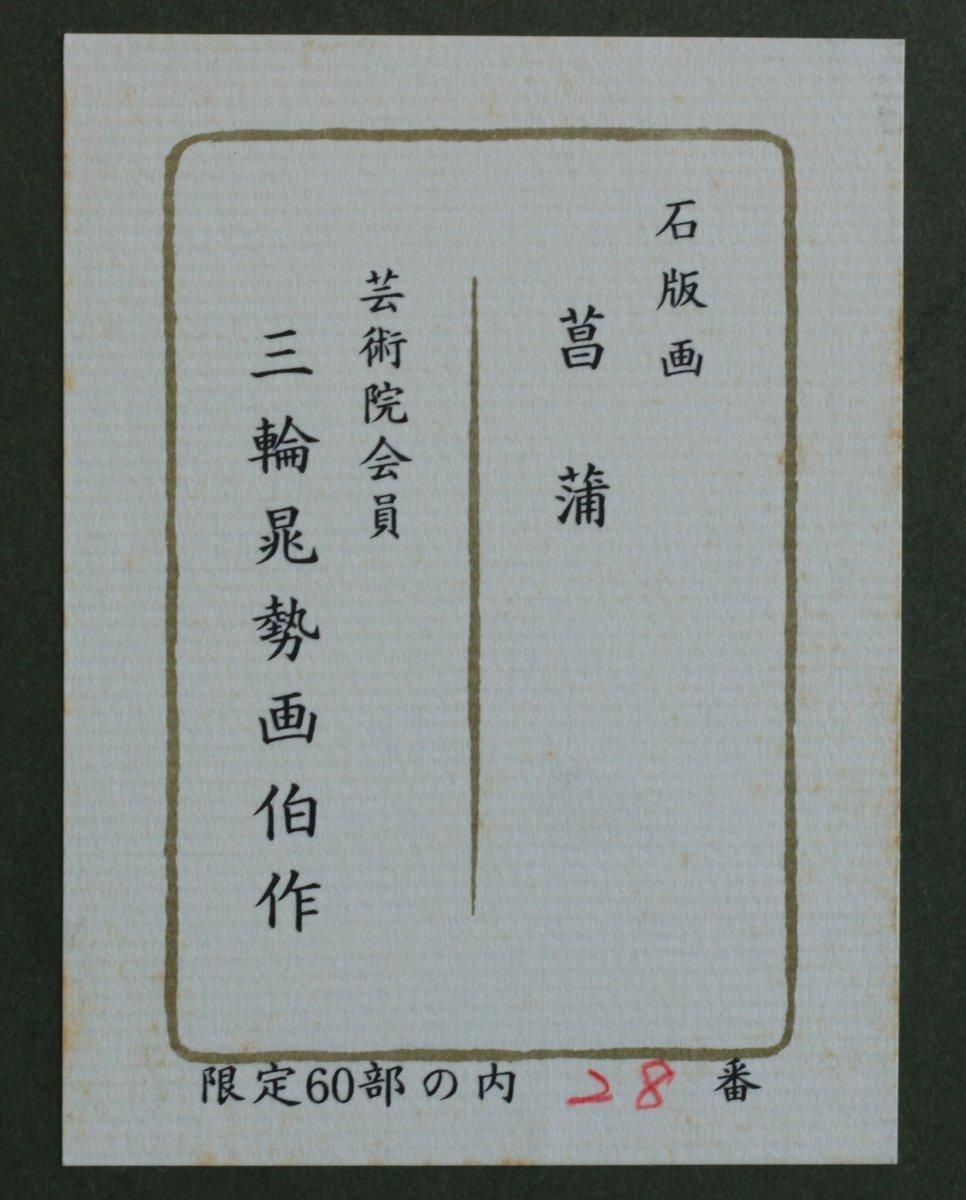 石版画
菖蒲
芸術院会員
三輪晁勢画伯作
限定60部の内 28 番